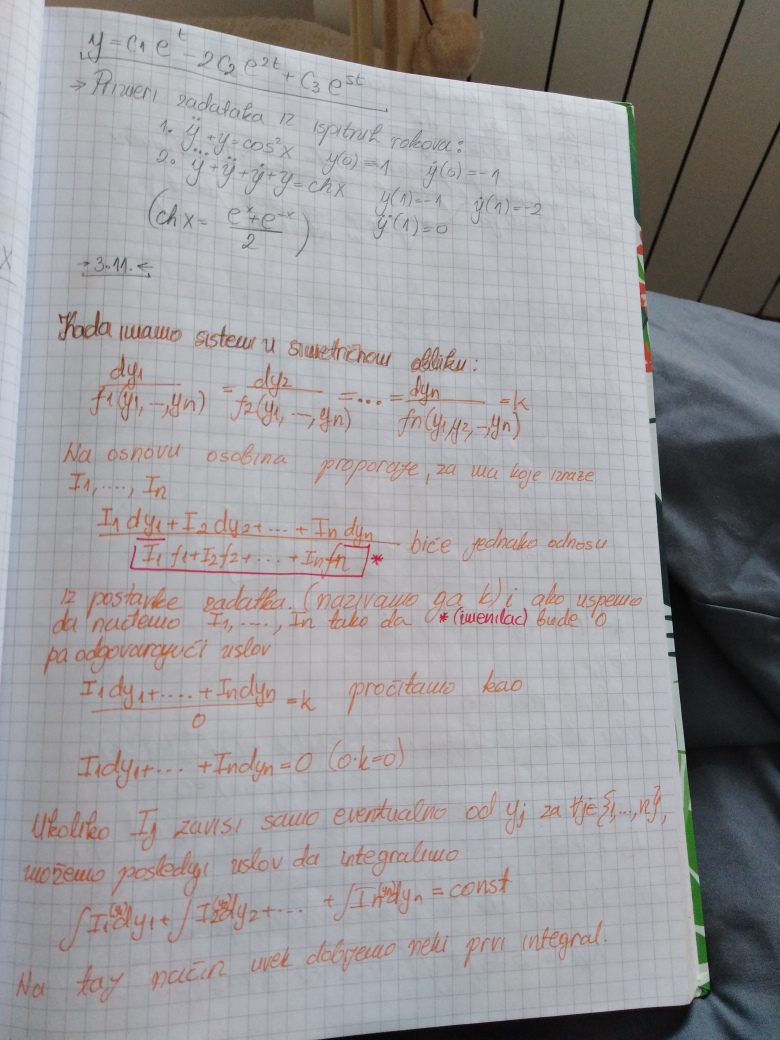 y = c₁e^t - 2c₂e^{2t} + c₃e^{5t}
→ Primeri zadataka iz ispitnih rokova:
1. ÿ + y = cos²x   y(0) = 1   ẏ(0) = -1
2. y⃛ + ÿ + ẏ + y = chx   y(1) = -1   ẏ(1) = -2
(chx = (e^x + e^{-x})/2)   ÿ(1) = 0
→ 3.11. ←
Kada imamo sistem u simetričnom obliku:
dy₁/f₁(y₁, –, yn) = dy₂/f₂(y₁, –, yn) = ... = dyn/fn(y₁, y₂, –, yn) = k
Na osnovu osobina proporcije, za ma koje izraze
I₁, ...., In
(I₁dy₁ + I₂dy₂ + ... + Indyn)/(I₁f₁ + I₂f₂ + ... + Infn) * biće jednako odnosu
iz postavke zadatka (nazivamo ga k) i ako uspemo
da nađemo I₁, ...., In tako da * (imenilac) bude 0
pa odgovarajući uslov
(I₁dy₁ + .... + Indyn)/0 = k   pročitamo kao
I₁dy₁ + ... + Indyn = 0 (0·k=0)
Ukoliko Ij zavisi samo eventualno od yj za ∀j∈{1,...,n},
možemo poslednji uslov da integralimo
∫I₁(y₁)dy₁ + ∫I₂(y₂)dy₂ + ... + ∫In(yn)dyn = const
Na taj način uvek dobijemo neki prvi integral.